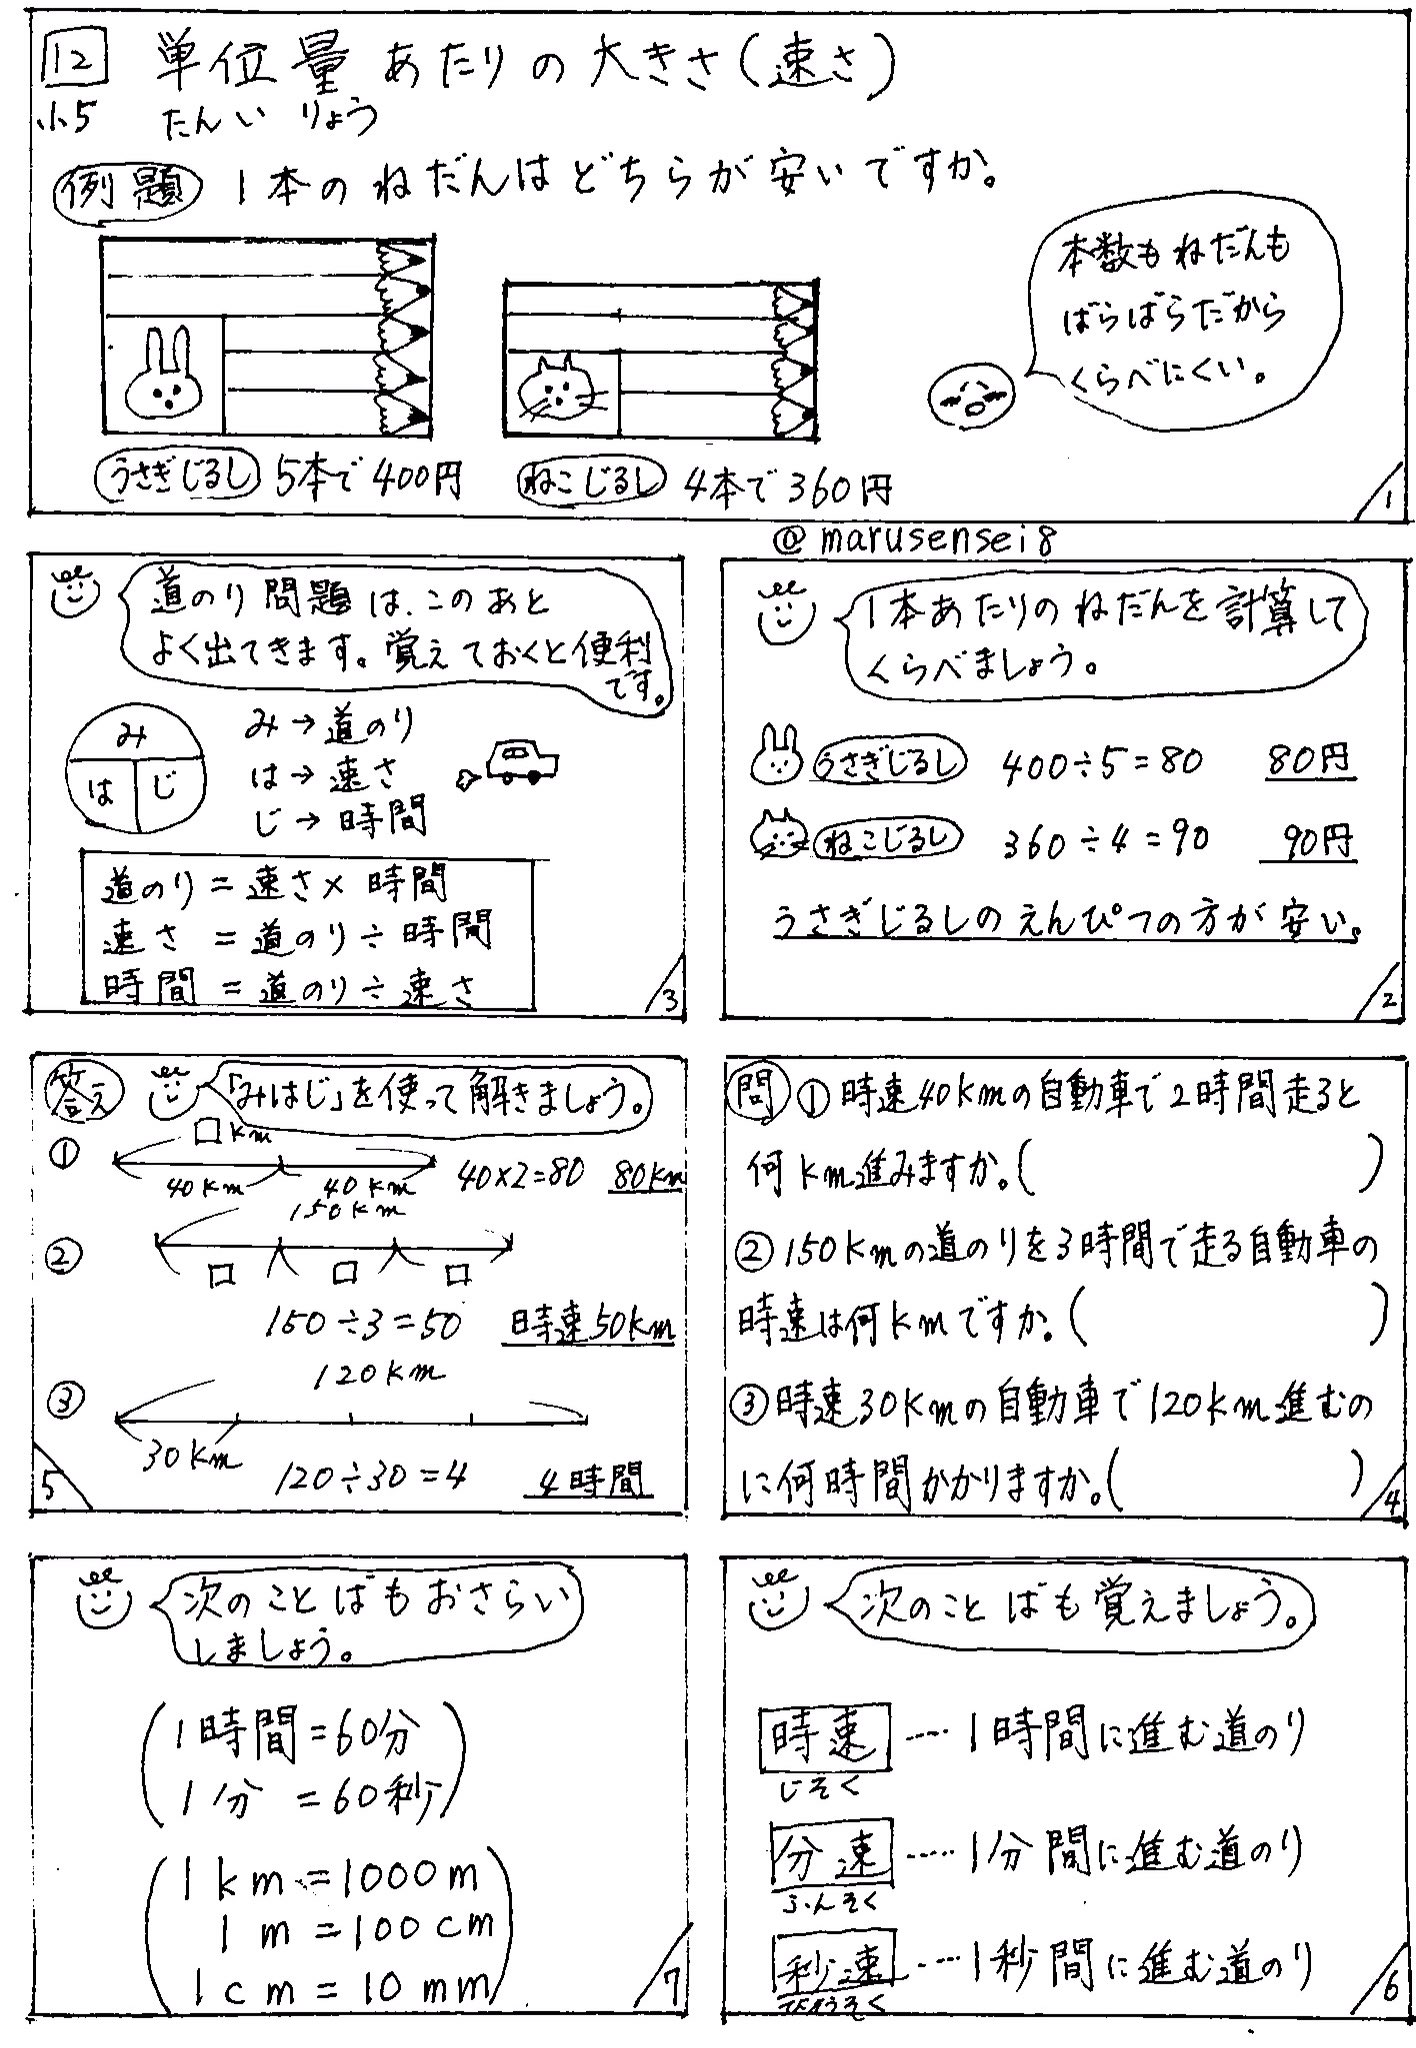 12 単位量あたりの大きさ(速さ)
小5 たんいりょう
例題 1本のねだんはどちらが安いですか。
本数もねだんも
ばらばらだから
くらべにくい。
うさぎじるし 5本で400円 ねこじるし 4本で360円
1
@marusensei8
1本あたりのねだんを計算して
くらべましょう。
うさぎじるし 400÷5=80 80円
ねこじるし 360÷4=90 90円
うさぎじるしのえんぴつの方が安い。
2
道のり問題は、このあと
よく出てきます。覚えておくと便利
です。
み
は じ
み→道のり
は→速さ
じ→時間
道のり=速さ×時間
速さ=道のり÷時間
時間=道のり÷速さ
3
問 ①時速40kmの自動車で2時間走ると
何km進みますか。( )
②150kmの道のりを3時間で走る自動車の
時速は何kmですか。( )
③時速30kmの自動車で120km進むの
に何時間かかりますか。( )
4
答え 「みはじ」を使って解きましょう。
① □km
40km 40km 40×2=80 80km
150km
② □ □ □
150÷3=50 時速50km
120km
③
30km 120÷30=4 4時間
5
次のことばも覚えましょう。
時速 ‥‥1時間に進む道のり
じそく
分速 ‥‥‥1分間に進む道のり
ふんそく
秒速 ‥‥1秒間に進む道のり
びょうそく
6
次のことばもおさらい
しましょう。
(1時間=60分
1分=60秒)
(1km=1000m
1m=100cm
1cm=10mm)
7